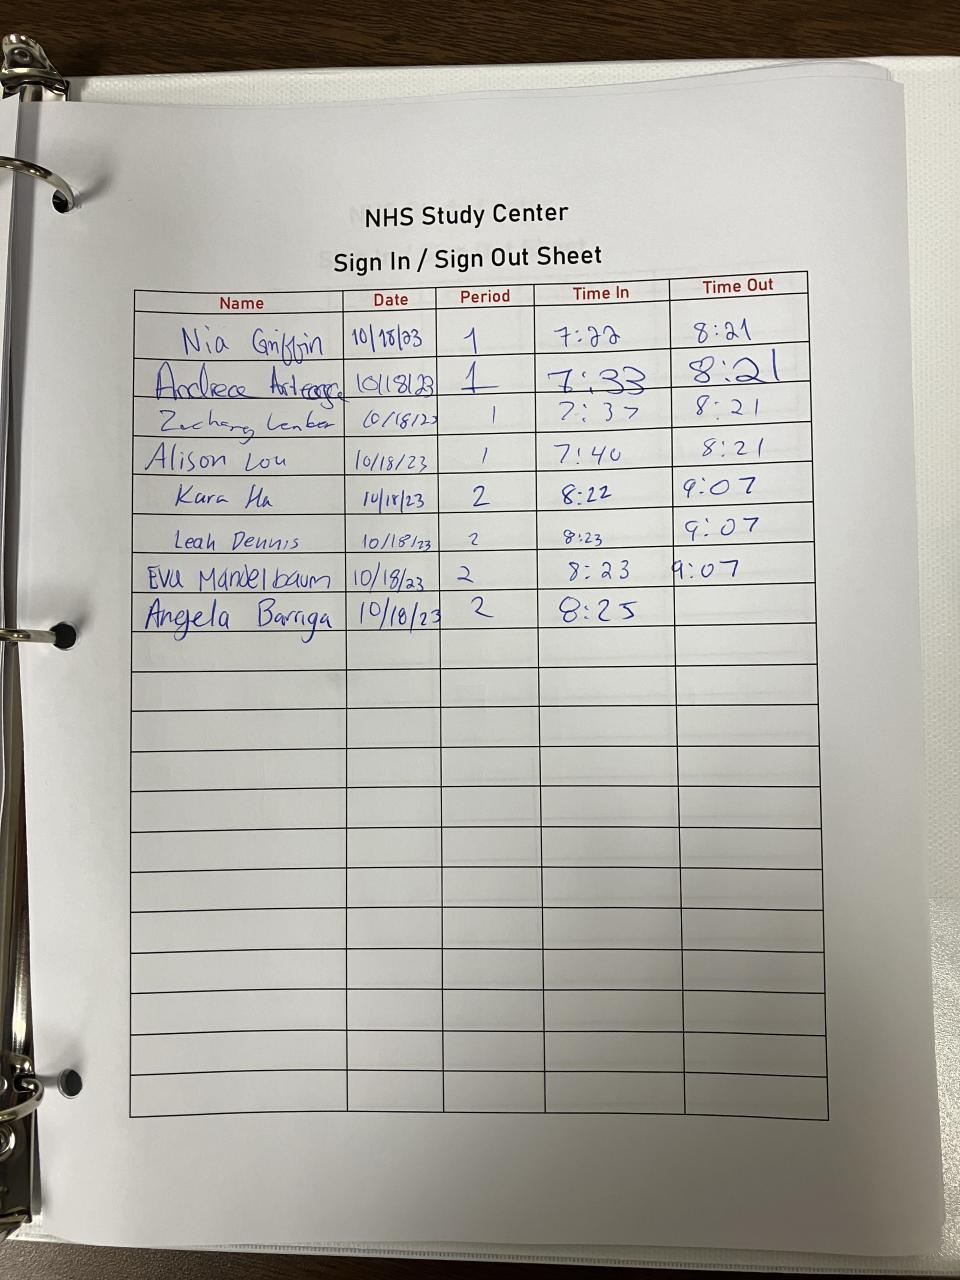 NHS Study Center
Sign In / Sign Out Sheet
Name Date Period Time In Time Out
Nia Griffin 10/18/23 1 7:22 8:21
Andrea Arteaga 10/18/23 1 7:33 8:21
Zachary 10/18/23 1 7:37 8:21
Alison Lou 10/18/23 1 7:40 8:21
Kara Ha 10/18/23 2 8:22 9:07
Leah Dennis 10/18/23 2 8:23 9:07
Eva Mandelbaum 10/18/23 2 8:23 9:07
Angela Barriga 10/18/23 2 8:25